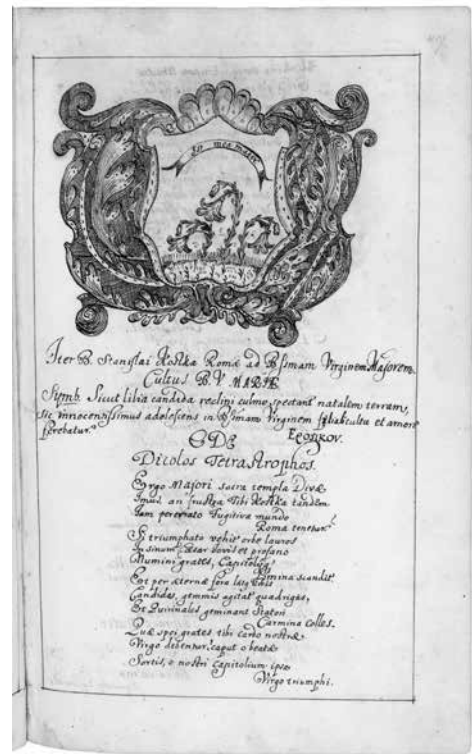 Eo mea messis
Iter B. Stanislai Kostka Romæ ad Bssmam Virginem Majorem.
Cultus B. V. MARIÆ
Simb. Sicut lilia candida reclini culmo spectant natalem terram,
sic innocentissimus adolescens in Bssmam Virginem cultu et amore
ferebatur.
ODE
Dicolos Tetrastrophos.
Ergo Majori sacra templa Divæ
Imus an frustra Tibi Kostka tandem
Iam pererrato Fugitiva mundo
Roma tenetur?
Si triumphato vehit orbe lauros
In sinum Jovis et profano
Numini grates, Capitolia
scandit
Et per æternæ fora
Candidas, gemmis agitat quadrigas,
Et Quirinales geminant
Carmina colles.
Quæ spei grates tibi cardo nostræ
Virgo debentur, caput o beatæ
Sortis, o nostri Capitolium ipsa
Virgo triumphi.